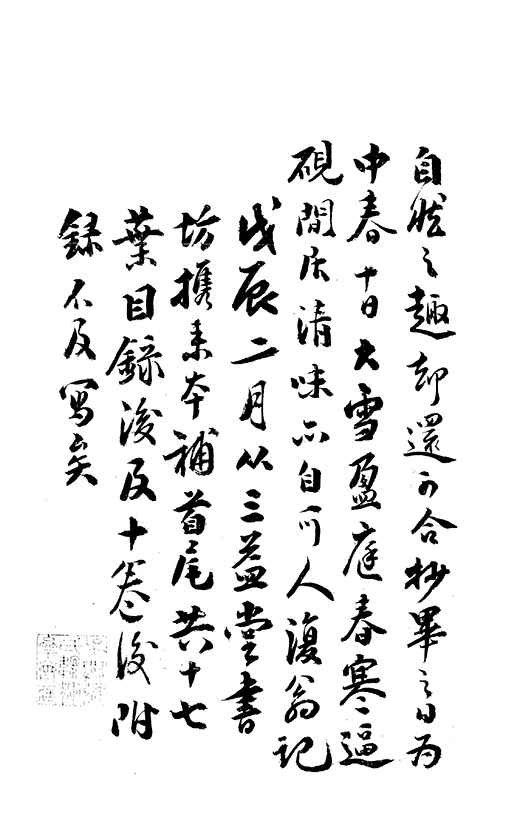 自然之趣却還可合抄畢之日為
中春十日大雪盈庭春寒逼
硯間居清味亦自可人復翁記
戊辰二月从三益堂書
坊携来本補首尾共十七
葉目録後及十卷後附
録不及寫矣